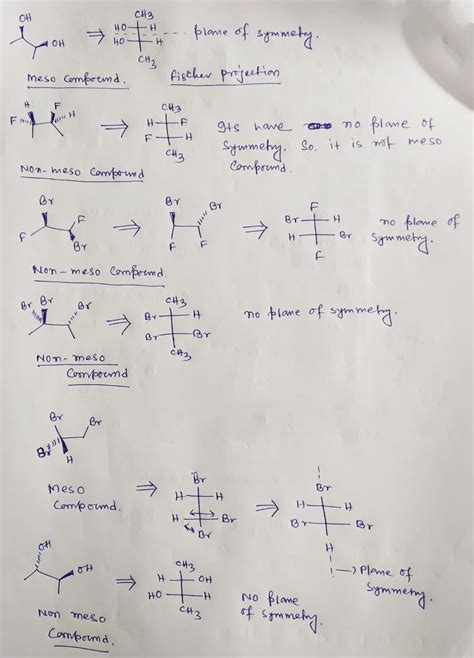 OH
OH
⇒
CH3
HO H
HO H
CH3
plane of symmetry.
Meso Compound.
fisther projection
H F
F H
⇒
CH3
H F
F H
CH3
Its have no plane of
symmetry. So, it is not meso
Compound.
Non-meso Compound
Br
F F
Br
⇒
Br Br
F F
⇒
F
Br H
H Br
F
no plane of
symmetry.
Non-meso Compound.
Br Br Br
⇒
CH3
Br H
Br Br
CH3
no plane of symmetry.
Non-meso
Compound
Br Br
Br
H
Meso
Compound.
⇒
Br
H H
H Br
Br
⇒
Br
H H
Br Br
H
→ Plane of
Symmetry.
OH
OH
⇒
CH3
H OH
HO H
CH3
No plane
of symmetry.
Non meso
Compound.